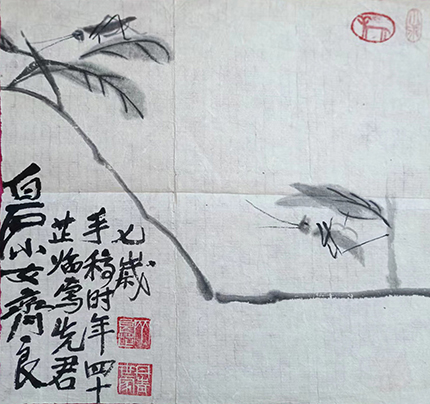 白石小女齊良
芷临寫先君
手稿时年四十
七歲